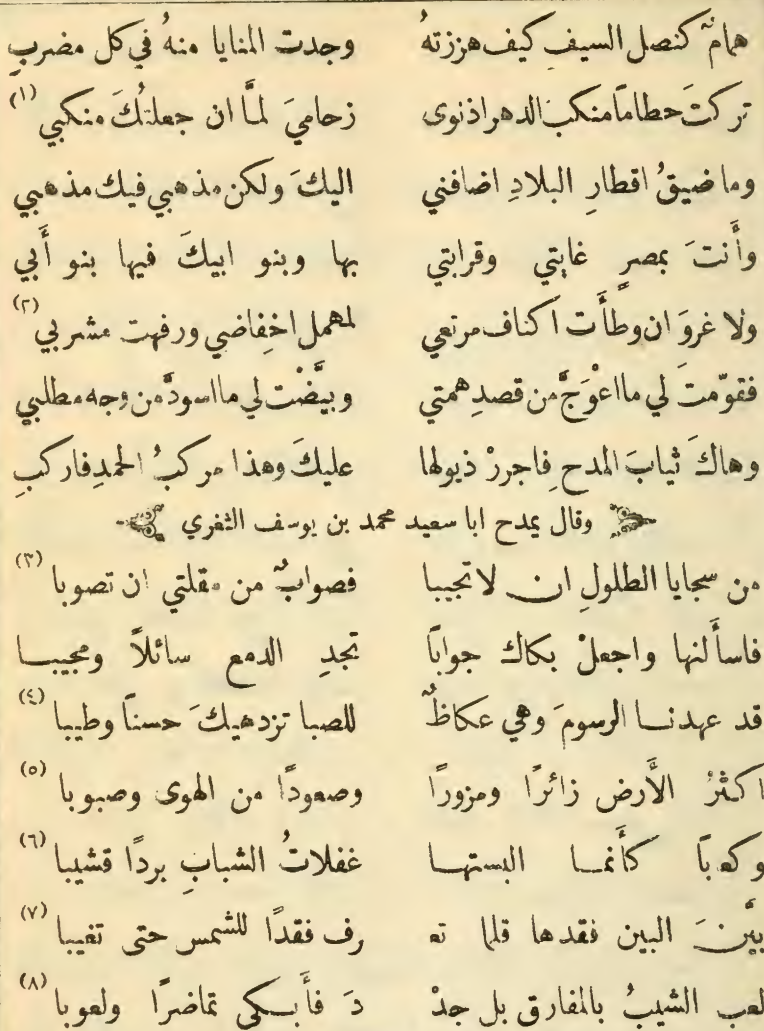 همامٌ كنصل السيف كيف هززتهُ وجدت المنايا منهُ في كل مضربِ
تركتَ حطامًا منكبَ الدهر اذ نوى زحاميَ لمَّا ان جعلتُكَ منكبي (١)
وما ضيقُ اقطارِ البلادِ اضافني اليكَ ولكن مذهبي فيك مذهبي
وأَنتَ بمصرٍ غايتي وقرابتي بها وبنو ابيكَ فيها بنو أَبي
ولا غروَ ان وطأَت اكناف مرتعي لمهمل اخفاضي ورفهت مشربي (٢)
فقوّمتَ لي ما اعْوَجَّ من قصدِ همتي وبيَّضْت لي ما اسودَّ من وجه مطلبي
وهاكَ ثيابَ المدحِ فاجررْ ذيولها عليكَ وهذا مركبُ الحمدِ فاركبِ
وقال يمدح ابا سعيد محمد بن يوسف الثغري
من سجايا الطلولِ ان لا تجيبا فصوابٌ من مقلتي ان تصوبا (٣)
فاسأَلنها واجعلْ بكاك جوابًا تجدِ الدمع سائلاً ومجيبا
قد عهدنا الرسومَ وهي عكاظٌ للصبا تزدهيكَ حسنًا وطيبا (٤)
اكثرُ الأَرض زائرًا ومزورًا وصعودًا من الهوى وصبوبا (٥)
وكعابًا كأَنما البستها غفلاتُ الشبابِ بردًا قشيبا (٦)
بيَّنَ البين فقدها قلما تعـ ـرف فقدًا للشمس حتى تغيبا (٧)
لعب الشيبُ بالمفارق بل جدْ دَ فأَبكى تماضرًا ولعوبا (٨)